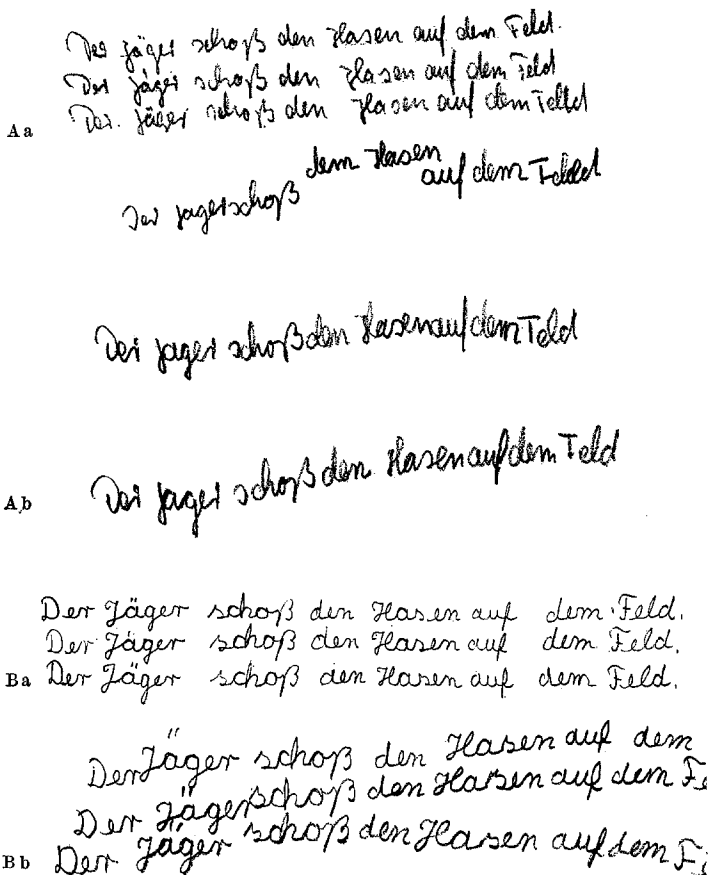 Der Jäger schoß den Hasen auf dem Feld.
Der Jäger schoß den Hasen auf dem Feld
Aa Der. Jäger schoß den Hasen auf dem Telld
Der Jager schoß dem Hasen auf dem Feldd
Der Jager schoß den Hasen auf dem Teld
Ab Der Jager schoß den Hasen auf dem Teld
Der Jäger schoß den Hasen auf dem Feld.
Der Jäger schoß den Hasen auf dem Feld.
Ba Der Jäger schoß den Hasen auf dem Feld.
Der Jäger schoß den Hasen auf dem
Der Jäger schoß den Hasen auf dem Fe
Bb Der Jäger schoß den Hasen auf dem F